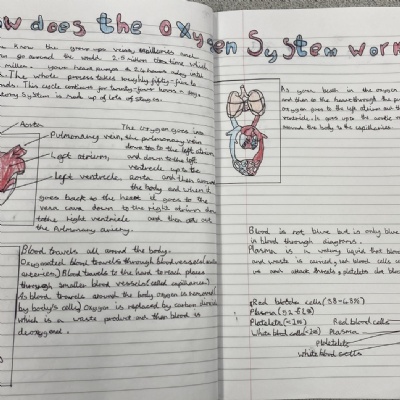 w does the oxygen System work
know the grown ups veins,
go around the world 2.5 million times which
million. your heart pumps 24 hours a day until
The whole process takes roughly fifty-five to
nds. This cycle continues for twenty-four hours a day
atory System is made up of lots of stages.
Aorta
Pulmonary vein,
Left atrium,
Left ventricle,
The oxygen goes into
the pulmonary vein
down to the left atrium
and down to the left
ventricle up to the
aorta and then around
the body and when it
goes back to the heart it goes to the
vena cava down to the right atrium down
to the right ventricle and then out
the Pulmonary artery.
Blood travels all around the body.
Oxygenated blood travels through blood vessels
arteries) Blood travels to the hard to reach places
through smaller blood vessels (called capillaries)
As blood travels around the body oxygen is removed
by body's cells) oxygen is replaced by carbon dioxide
which is a waste product and then blood is
deoxygenated.
As you breath in the oxygen
and then to the heart through the pulm
oxygen goes to the left atrium
ventricle. It goes up to the aortic
around the body to the capillaries
Blood is not blue but is only blue
in blood through diagrams.
Plasma is a watery liquid that
and waste is carried, red blood cells
we and attack threats, platelets
Red blood cells (38-43%)
Plasma
Platelets (<2%)
White blood cells
Red blood cells
Plasma
Platelets
White blood cells